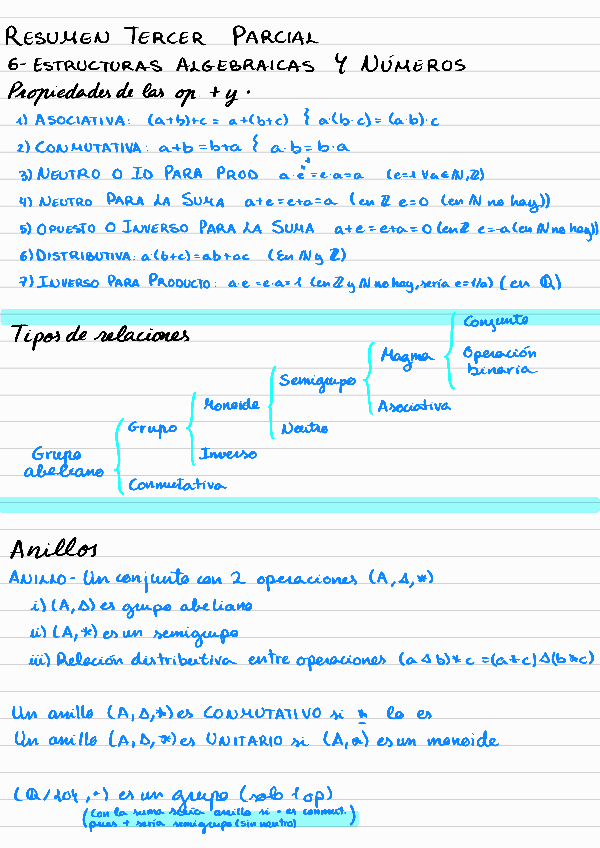 RESUMEN TERCER PARCIAL
6- ESTRUCTURAS ALGEBRAICAS Y NÚMEROS
Propiedades de las op + y ·
1) ASOCIATIVA: (a+b)+c = a+(b+c) { a·(b·c) = (a·b)·c
2) CONMUTATIVA: a+b = b+a { a·b = b·a
3) NEUTRO O ID PARA PROD a·e = e·a = a (e=1 ∀a∈ℕ,ℤ)
4) NEUTRO PARA LA SUMA a+e = e+a = a (en ℤ e=0 (en ℕ no hay))
5) OPUESTO O INVERSO PARA LA SUMA a+e = e+a = 0 (en ℤ e=-a (en ℕ no hay))
6) DISTRIBUTIVA: a·(b+c) = ab+ac (En ℕ y ℤ)
7) INVERSO PARA PRODUCTO: a·e = e·a = 1 (en ℤ y ℕ no hay, sería e=1/a) (en ℚ)
Tipos de relaciones
Conjunto
Magma
Operación binaria
Semigrupo
Monoide
Asociativa
Grupo
Neutro
Grupo abeliano
Inverso
Conmutativa
Anillos
ANILLO - Un conjunto con 2 operaciones (A, Δ, *)
i) (A, Δ) es grupo abeliano
ii) (A, *) es un semigrupo
iii) Relación distributiva entre operaciones (a Δ b)*c = (a*c) Δ (b*c)
Un anillo (A, Δ, *) es CONMUTATIVO si * lo es
Un anillo (A, Δ, *) es UNITARIO si (A, *) es un monoide
(ℚ/{0}, ·) es un grupo (solo 1 op)
(Con la suma sería anillo si · es conmut.
pues + sería semigrupo (sin neutro)